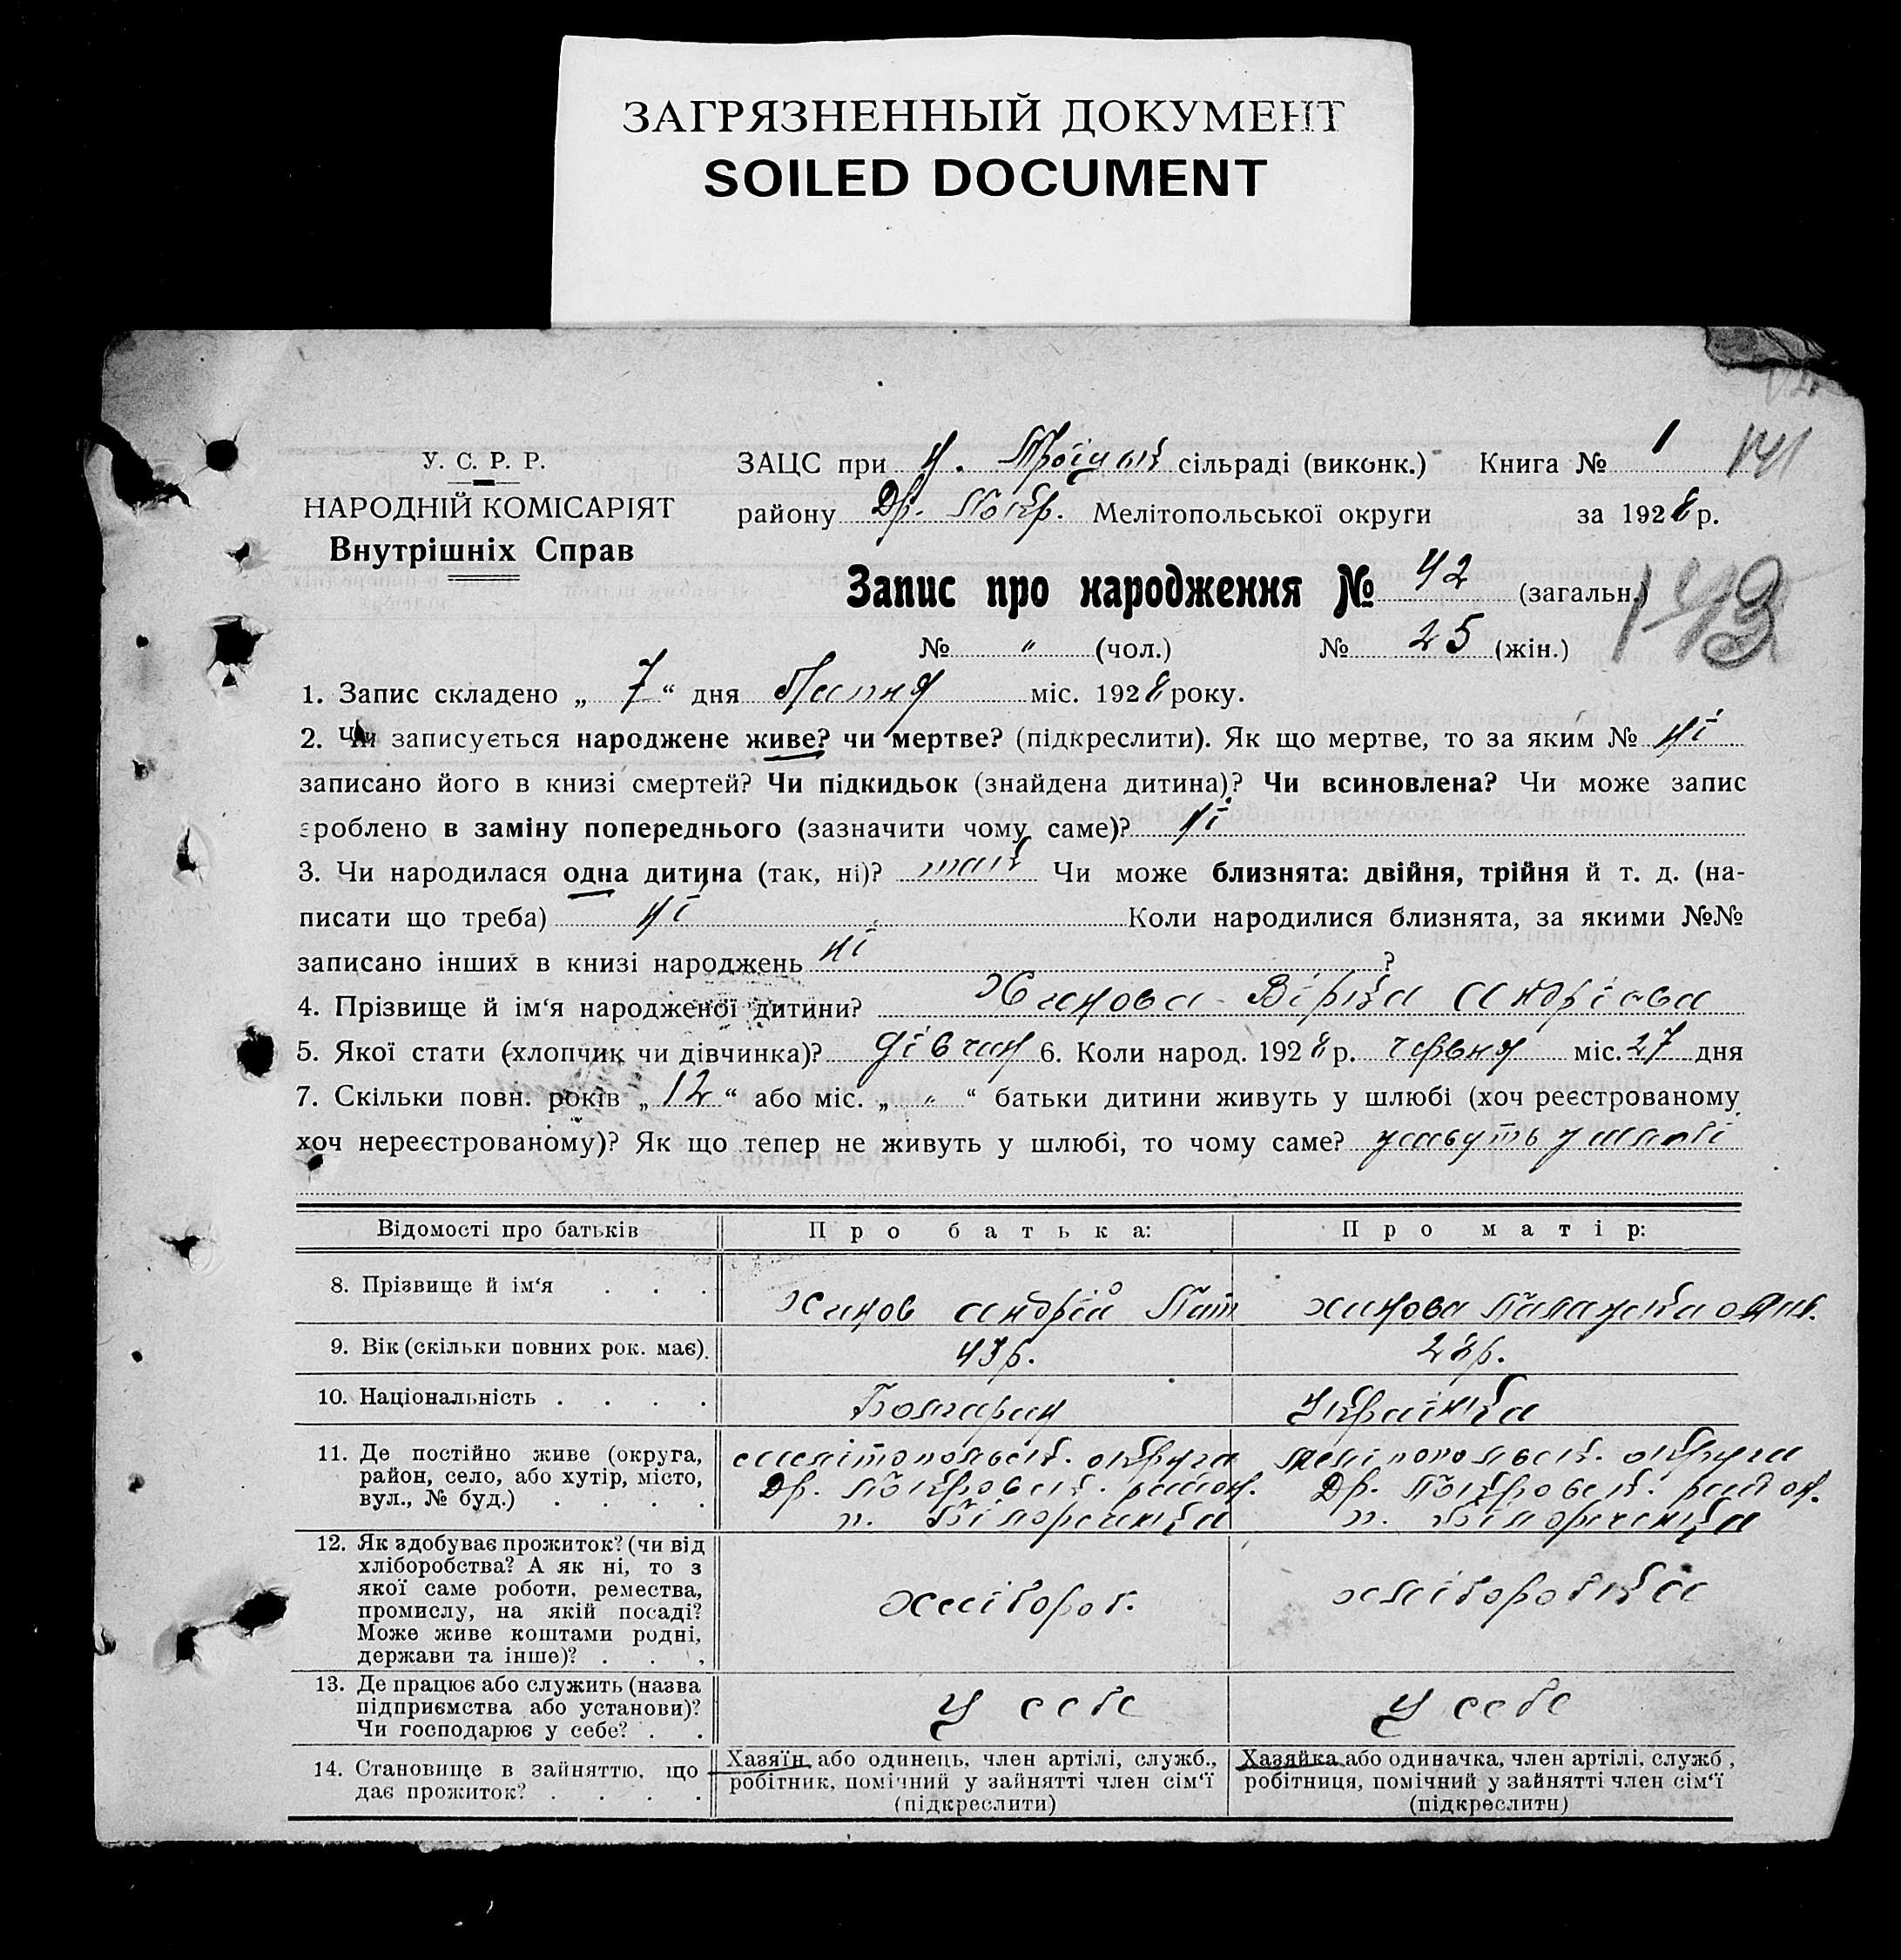 ЗАГРЯЗНЕННЫЙ ДОКУМЕНТ
SOILED DOCUMENT
У. С. Р. Р.
НАРОДНІЙ КОМІСАРІЯТ
Внутрішніх Справ
ЗАЦС при Н. Троїцьк сільраді (виконк.) Книга № 1 141
району Др. Покр. Мелітопольської округи за 1928 р.
Запис про народження № 42 (загальн.)
143
№ " (чол.) № 25 (жін.)
1. Запис складено „ 7 “ дня Липня міс. 1928 року.
2. Чи записується народжене живе? чи мертве? (підкреслити). Як що мертве, то за яким № ні
записано його в книзі смертей? Чи підкидьок (знайдена дитина)? Чи всиновлена? Чи може запис
зроблено в заміну попереднього (зазначити чому саме)? ні
3. Чи народилася одна дитина (так, ні)? так Чи може близнята: двійня, трійня й т. д. (на-
писати що треба) ні Коли народилися близнята, за якими №№
записано інших в книзі народжень ні ?
4. Прізвище й ім‘я народженої дитини? Вірка Андріева
5. Якої стати (хлопчик чи дівчинка)? дівчин 6. Коли народ. 1928 р. червня міс. 27 дня
7. Скільки повн. років „ 12 “ або міс. „ " “ батьки дитини живуть у шлюбі (хоч реєстрованому
хоч нереєстрованому)? Як що тепер не живуть у шлюбі, то чому саме? живуть у шлюбі
Відомості про батьків Про батька: Про матір:
8. Прізвище й ім‘я . . . Андрій
9. Вік (скільки повних рок. має). 43 р. 28 р.
10. Національність . . . . Болгарин Українка
11. Де постійно живе (округа, Мелітопольськ. округа Мелітопольськ. округа
район, село, або хутір, місто, Др. Покровськ. район. Др. Покровськ. район.
вул., № буд.) . . . . п. Білоречанка п. Білоречанка
12. Як здобуває прожиток? (чи від
хліборобства? А як ні, то з
якої саме роботи, ремества, хлібороб. хліборобка
промислу, на якій посаді?
Може живе коштами родні,
держави та інше)? . . .
13. Де працює або служить (назва
підприємства або установи)? У себе У себе
Чи господарює у себе? . .
14. Становище в зайняттю, що
дає прожиток? . . . .
Хазяїн або одинець, член артілі, служб.,
робітник, помічний у зайнятті член сім‘ї
(підкреслити)
Хазяйка або одиначка, член артілі, служб,
робітниця, помічний у зайнятті член сім‘ї
(підкреслити)